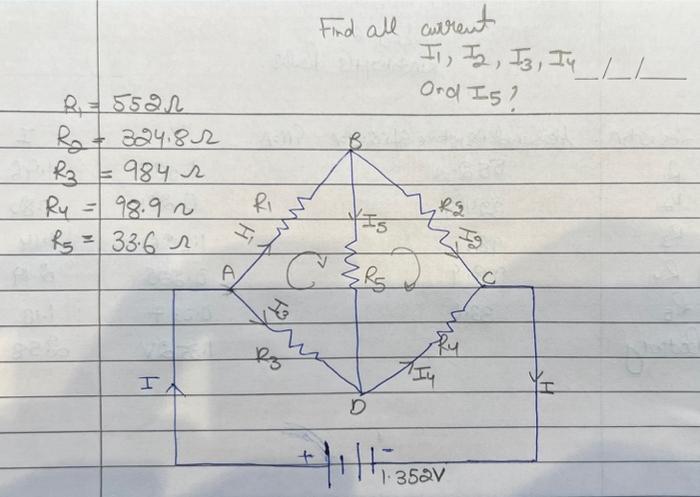 Find all current
I1, I2, I3, I4 _/_/_
And I5?
R1 = 552Ω
R2 = 324.8Ω
R3 = 984Ω
R4 = 98.9Ω
R5 = 33.6Ω
B
R1
I1
I5
R2
I2
A
R5
C
I3
R3
R4
I4
D
I
I
+
-
1.352V